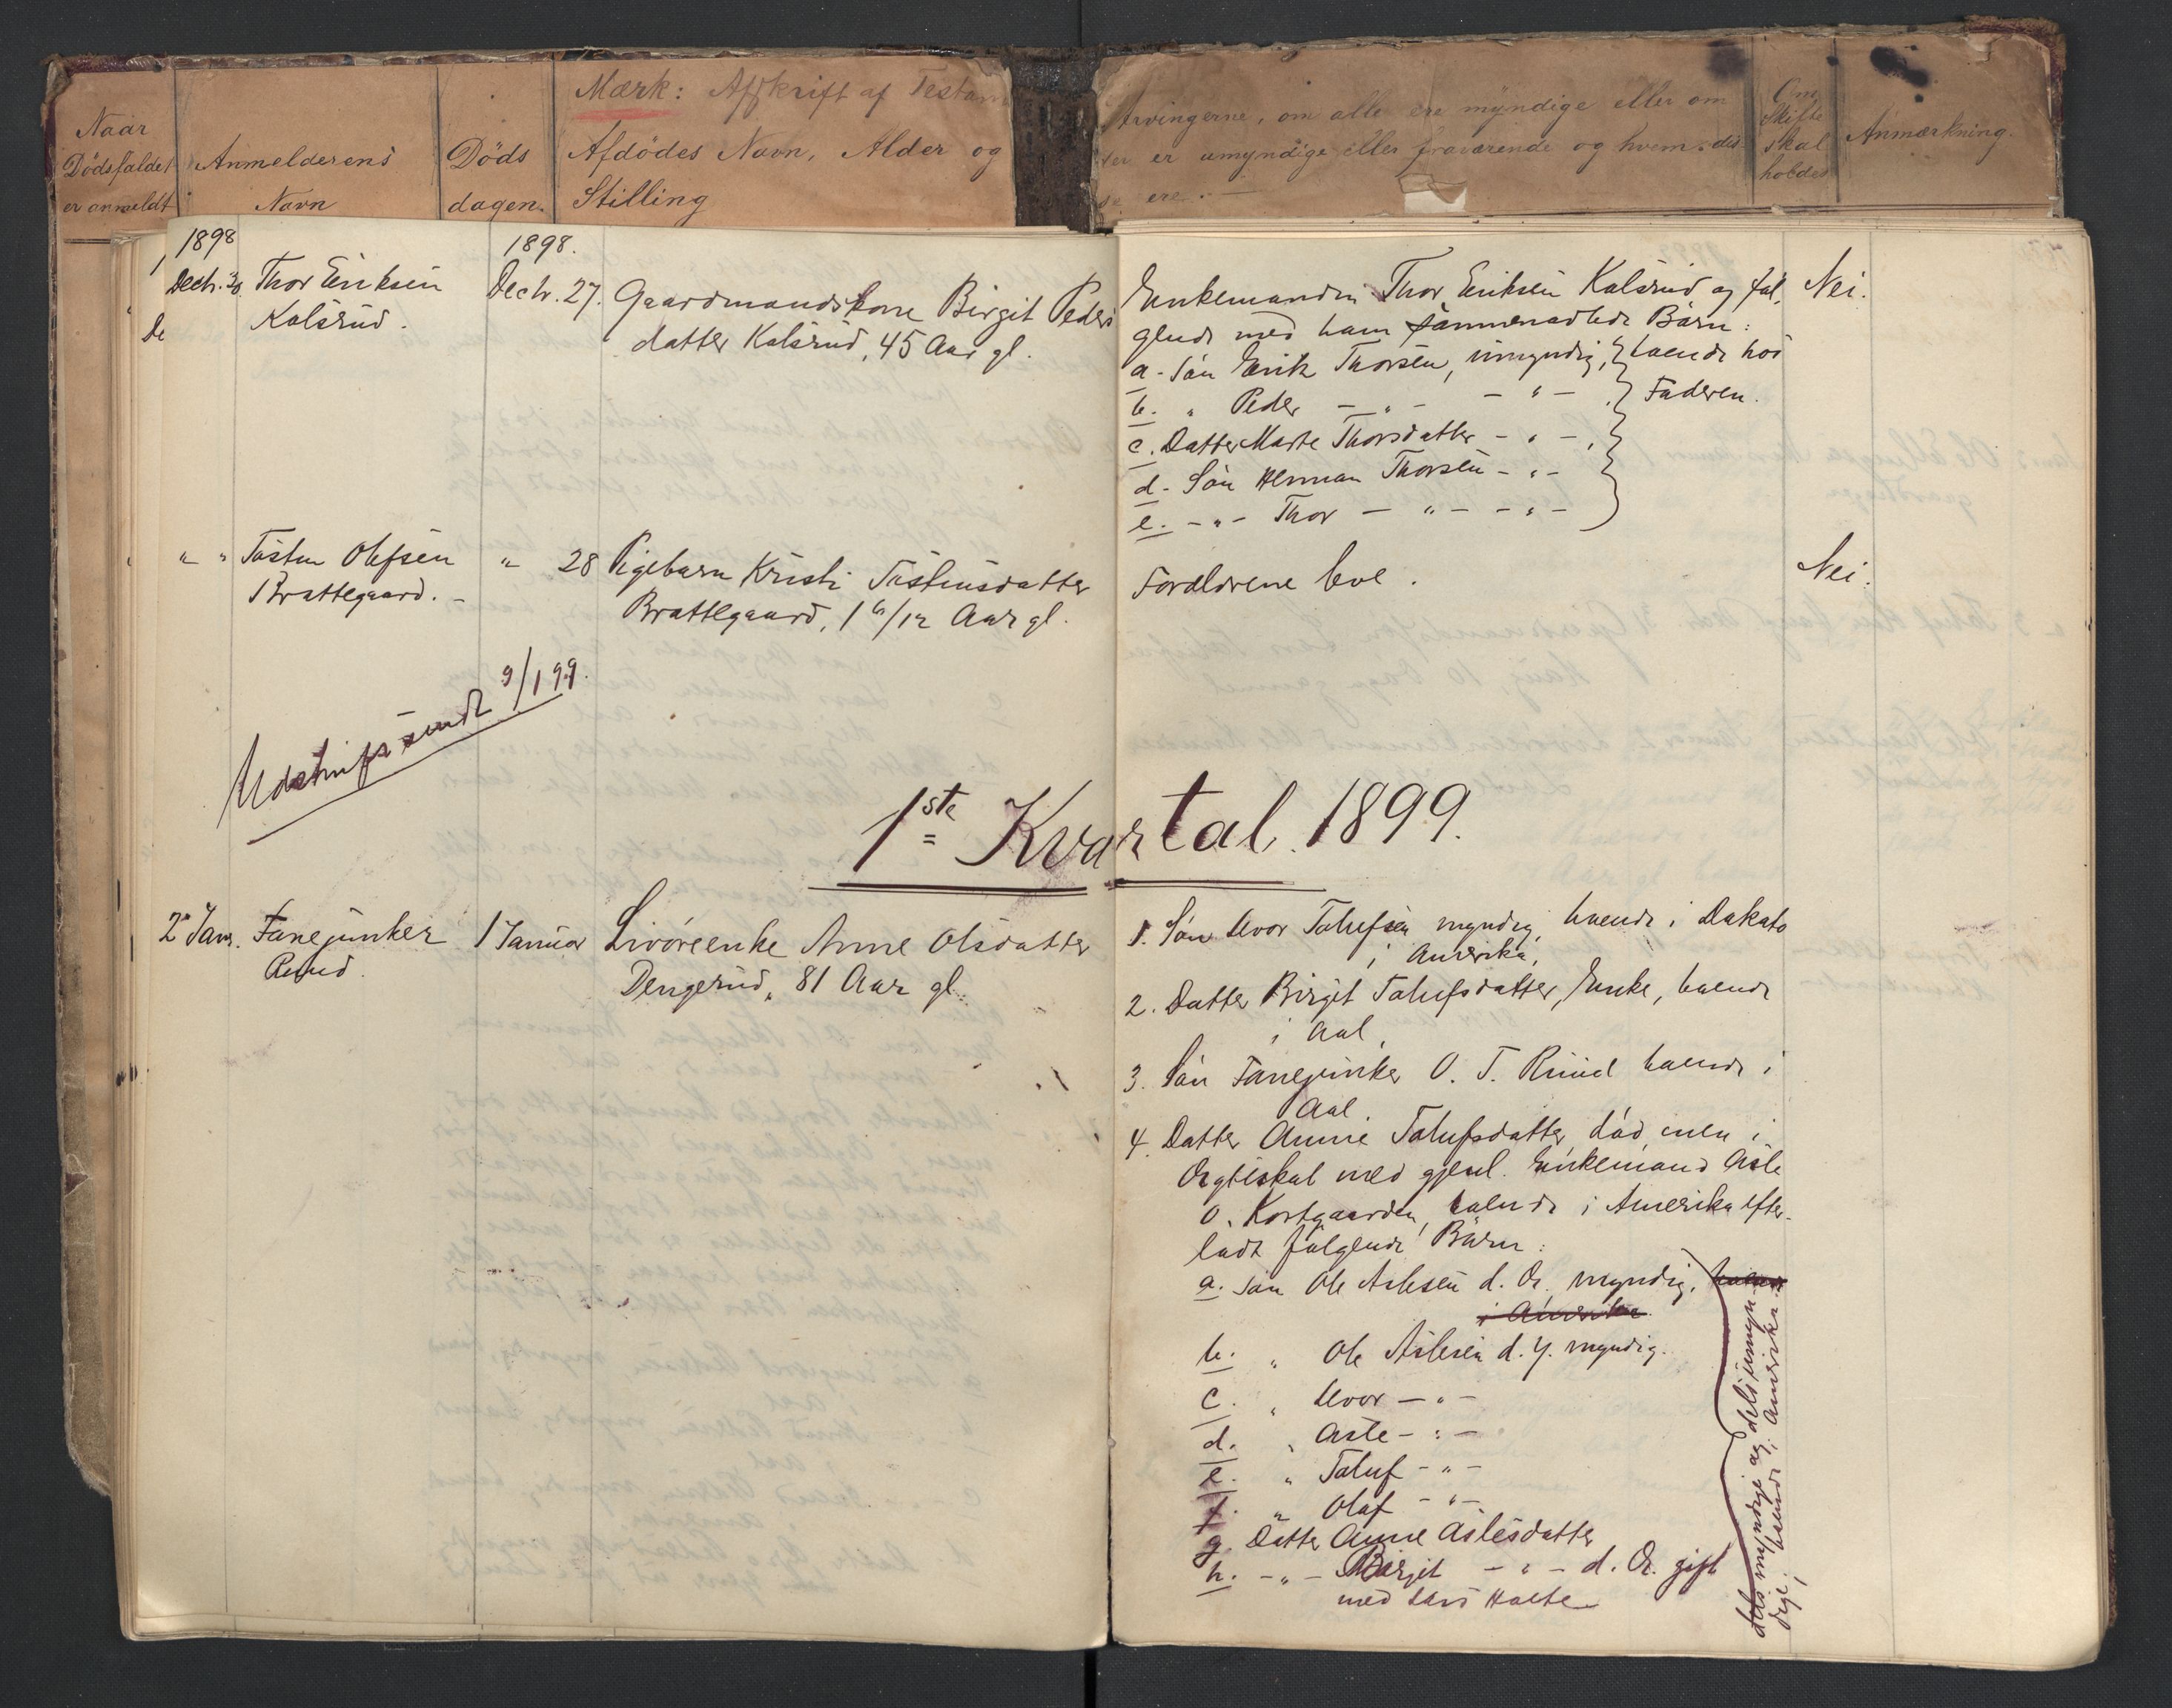 Mærk: Afskrift af Testam
Naar
Dödsfaldet
er anmeldt
Anmelderens
Navn
Döds
dagen.
Afdödes Navn, Alder og
Stilling
Arvingerne, om alle ere myndige eller om
er umyndige eller fraværende og hvem dis
se ere.
Om
Skifte
skal
holdes
Anmærkning.
1898
Decbr. 30.
Thor Eriksen
Kalsrud.
1898.
Decbr. 27.
Gaardmandskone Birgit Peders
datter Kalsrud, 45 Aar gl.
Enkemanden Thor Eriksen Kalsrud og föl,
gende med ham sammenavlede Børn:
a. Sön Erik Thorsen, umyndig, } boende hos
b. " Peder — " — — " — } Faderen.
c. Datter Marte Thorsdatter — " —
d. Sön Herman Thorsen — " —
e. — " — Thor — " — — " —
Nei.
" "
Tosten Olefsen
Brattegaard. —
" 28
Pigebarn Kristi Tostensdatter
Brattegaard, 1 6/12 Aar gl.
Forældrene leve.
Nei.
Udskrift sendt 9/1 99.
1ste Kvartal 1899.
2 Jan.
Fanejunker
Ruud.
1 Januar
Livöreenke Anne Olsdatter
Dengerud, 81 Aar gl.
1. Sön Hvor Tolefsen myndig, boende i Dakota
i Amerika,
2. Datter Birgit Tolefsdatter, Enke, boende
i Aal,
3. Sön Fanejunker O. T. Ruud boende i
Aal.
4. Datter Anne Tolefsdatter död, men i
Ægteskab med gjenl. Enkemand Asle
O. Kortgaarden, boende i Amerika efter-
ladt fölgende Börn:
a. Sön Ole Aslesen d. Æ. myndig, boende
i Amerika
b. " Ole Aslesen d. y. myndig.
c. " Hvor — " —
d. " Asle — " —
e. " Toluf — " —
f. " Olaf — " —
g. Datter Anne Aslesdatter
h. — " — Birgit — " — d. Æ. gift
med Lars Holte
dels myndige og dels umyn-
dige, boende i Amerika.